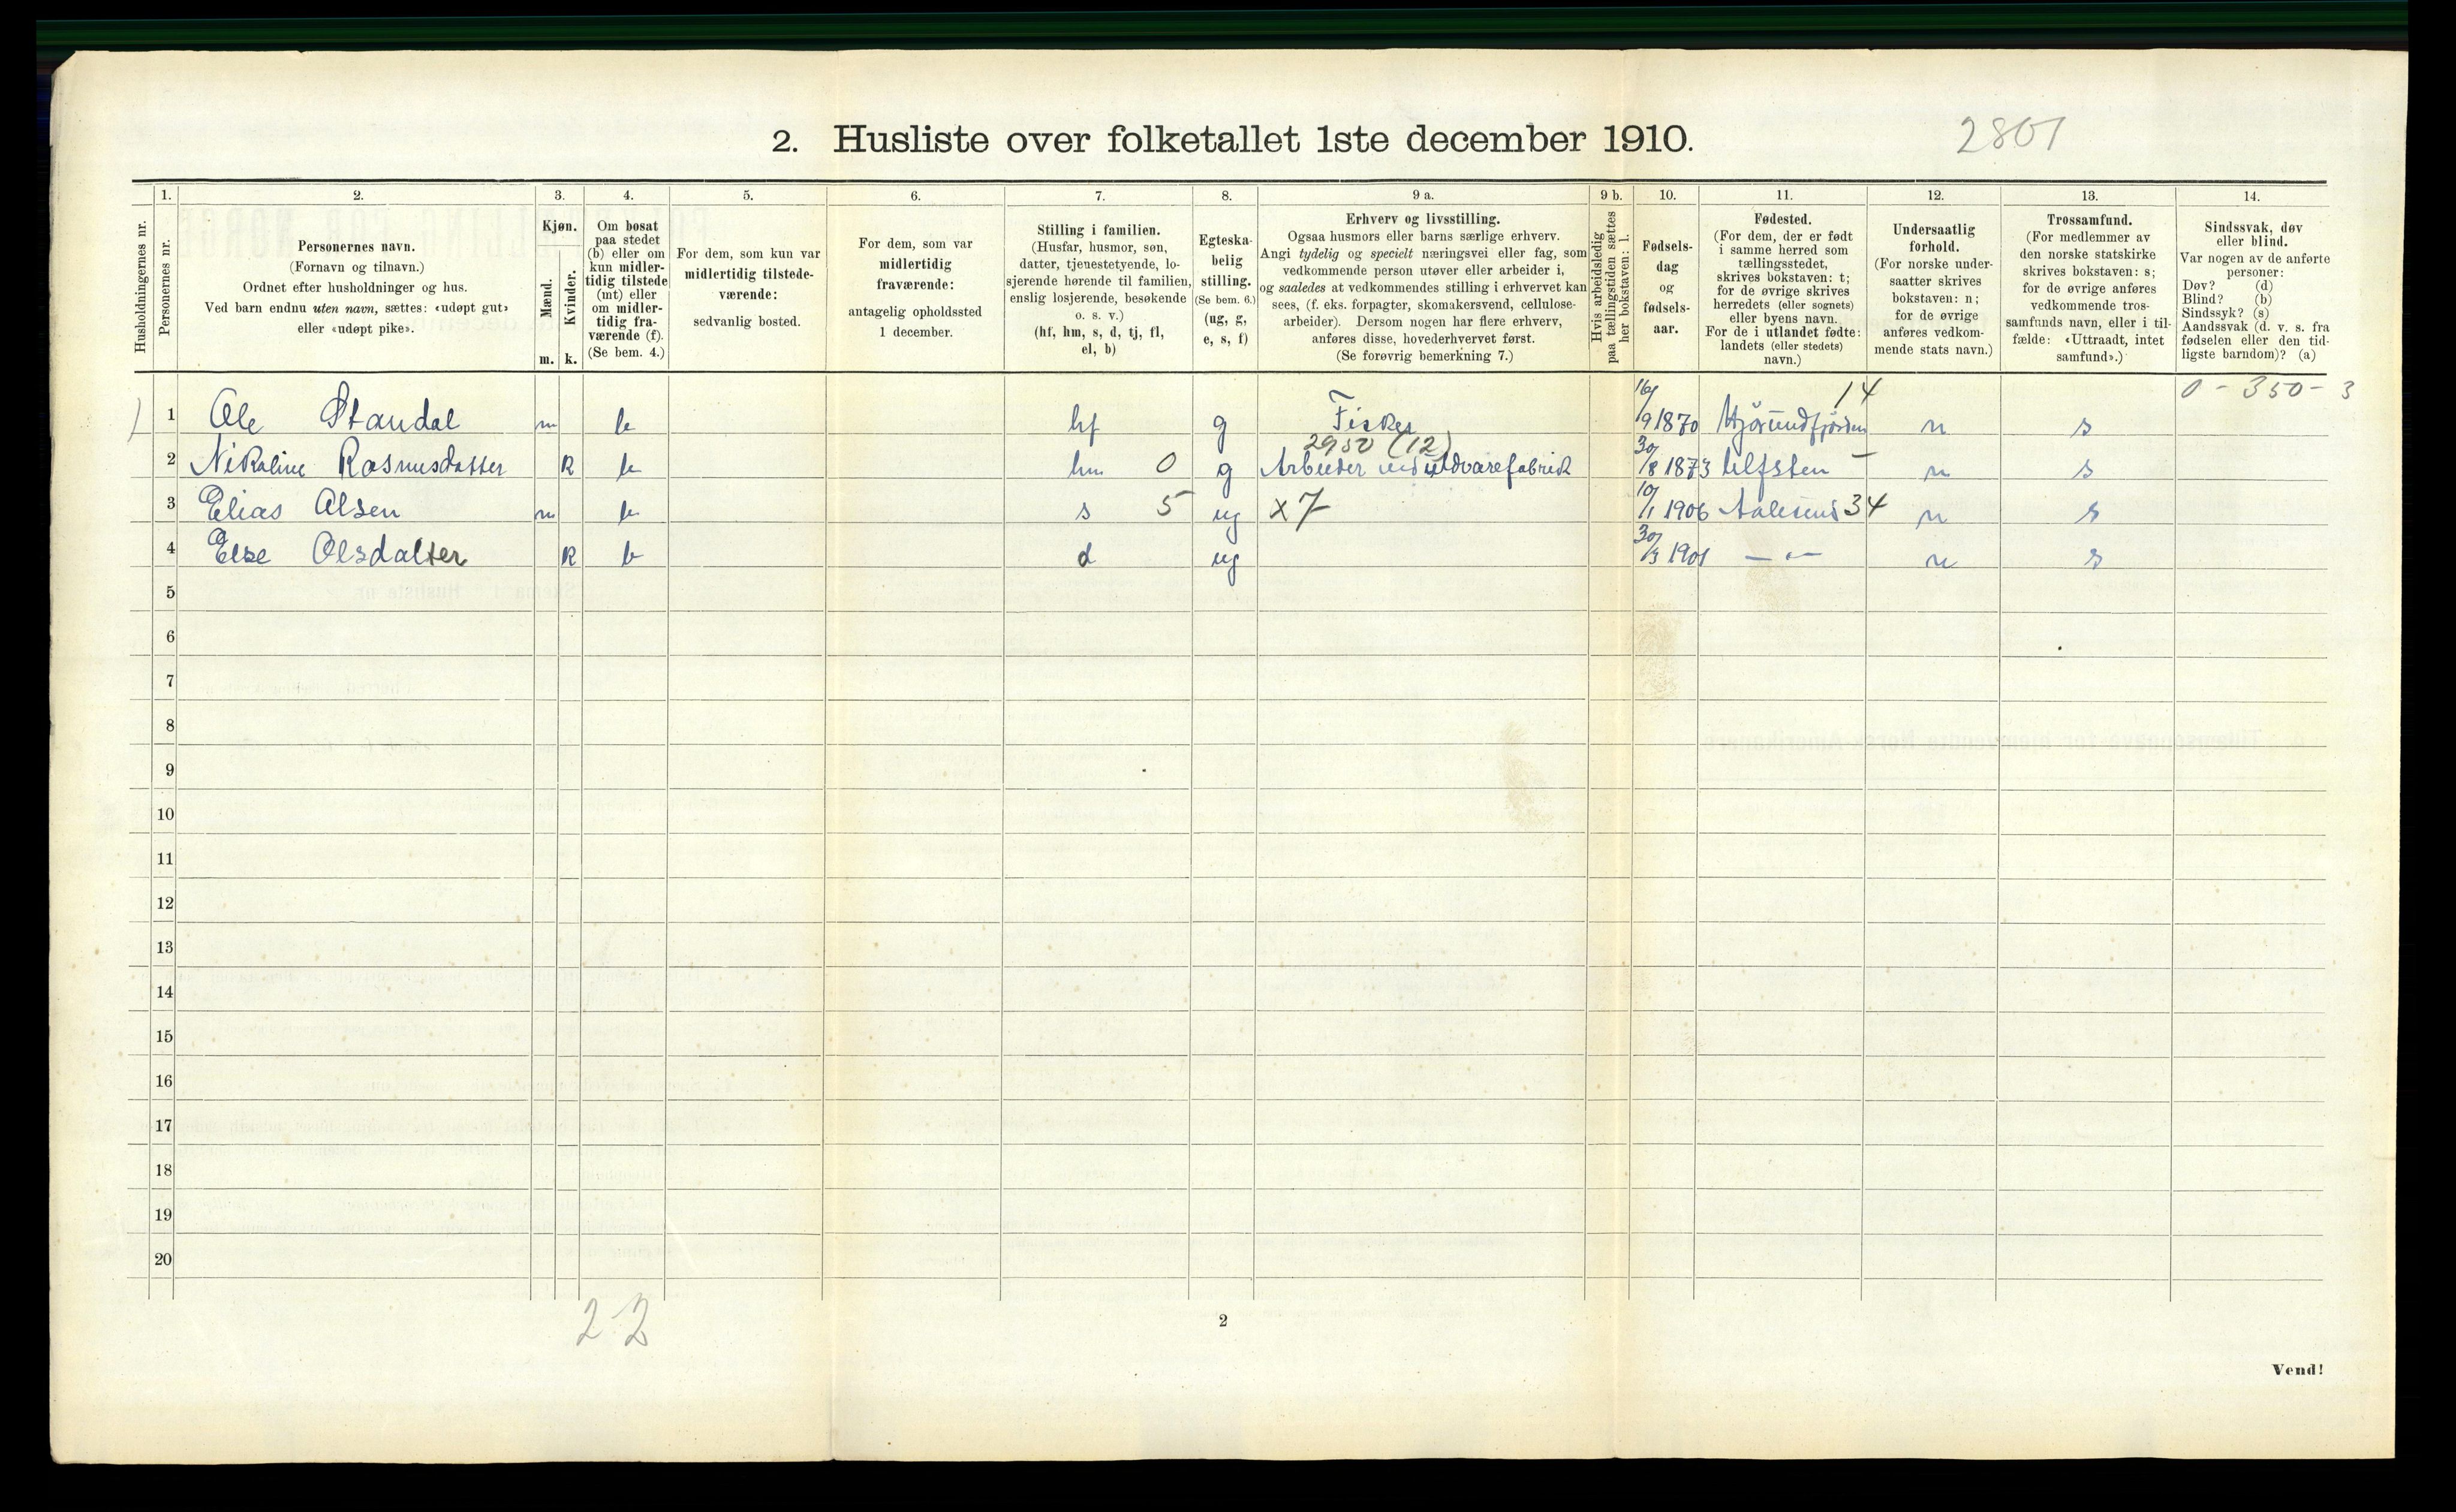 2. Husliste over folketallet 1ste december 1910.
2801
Husholdningernes nr.
1.
Personernes nr.
2.
Personernes navn.
(Fornavn og tilnavn.)
Ordnet efter husholdninger og hus.
Ved barn endnu uten navn, sættes: «udøpt gut»
eller «udøpt pike».
3.
Kjøn.
Mænd.
Kvinder.
m. k.
4.
Om bosat
paa stedet
(b) eller om
kun midler-
tidig tilstede
(mt) eller
om midler-
tidig fra-
værende (f).
(Se bem. 4.)
5.
For dem, som kun var
midlertidig tilstede-
værende:
sedvanlig bosted.
6.
For dem, som var
midlertidig
fraværende:
antagelig opholdssted
1 december.
7.
Stilling i familien.
(Husfar, husmor, søn,
datter, tjenestetyende, lo-
sjerende hørende til familien,
enslig losjerende, besøkende
o. s. v.)
(hf, hm, s, d, tj, fl,
el, b)
8.
Egteska-
belig
stilling.
(Se bem. 6.)
(ug, g,
e, s, f)
9 a.
Erhverv og livsstilling.
Ogsaa husmors eller barns særlige erhverv.
Angi tydelig og specielt næringsvei eller fag, som
vedkommende person utøver eller arbeider i,
og saaledes at vedkommendes stilling i erhvervet kan
sees, (f. eks. forpagter, skomakersvend, cellulose-
arbeider). Dersom nogen har flere erhverv,
anføres disse, hovederhvervet først.
(Se forøvrig bemerkning 7.)
9 b.
Hvis arbeidsledig
paa tællingstiden sættes
her bokstaven: l.
10.
Fødsels-
dag
og
fødsels-
aar.
11.
Fødested.
(For dem, der er født
i samme herred som
tællingsstedet,
skrives bokstaven: t;
for de øvrige skrives
herredets (eller sognets)
eller byens navn.
For de i utlandet fødte:
landets (eller stedets)
navn.)
12.
Undersaatlig
forhold.
(For norske under-
saatter skrives
bokstaven: n;
for de øvrige
anføres vedkom-
mende stats navn.)
13.
Trossamfund.
(For medlemmer av
den norske statskirke
skrives bokstaven: s;
for de øvrige anføres
vedkommende tros-
samfunds navn, eller i til-
fælde: «Uttraadt, intet
samfund».)
14.
Sindssvak, døv
eller blind.
Var nogen av de anførte
personer:
Døv? (d)
Blind? (b)
Sindssyk? (s)
Aandssvak (d. v. s. fra
fødselen eller den tid-
ligste barndom)? (a)
14 0 - 350 - 3
1 Ole Standal m b hf g Fisker 16/9 1870 Hjørundfjorden n s
2950 (12)
2 Nikoline Rasmusdatter k b hm 0 g Arbeider ved uldvarefabrik 30/8 1873 Ulfsten - n s
3 Elias Olsen m b s 5 ug x7 10/1 1906 Aalesund 34 n s
4 Else Olsdatter k b d ug 30/3 1901 — " — n s
5
6
7
8
9
10
11
12
13
14
15
16
17
18
19
20
2 2
2
Vend!